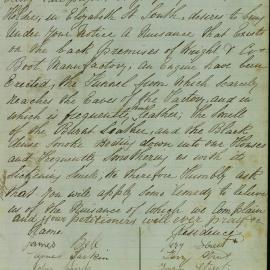 Holders, in Elizabeth St South, desires to bring
Under your notice A Nuisance that Exists
on the back premises of Wright & Co
Boot Manufactory, An Engine have been
Erected, the Funnel from which scarcely
reaches the Eaves of the Factory and in
which is frequently leather, the smell
of the Burnt leather, and the Black
dense smoke down into our Houses
and frequently Smothering us with its
sickening smell, We therefore Humbly ask
that You will apply some remedy to relieve
us of the Nuisance of which we Complain
and your petitioners will ever pray
Name Residence
James Ivy Street
James Ivy Street